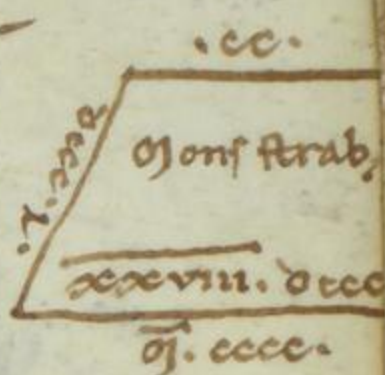 .cc.
Monſ ſtrab.
xxviii. dccc
M̄. cccc.